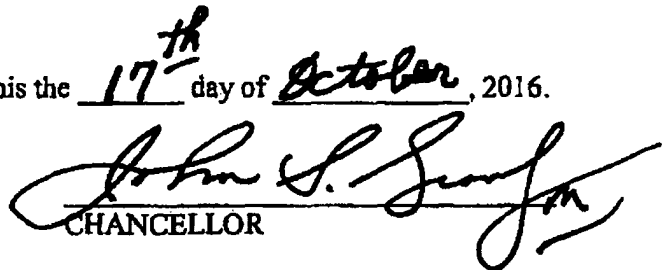 his the 17th day of October, 2016.
John S.
CHANCELLOR